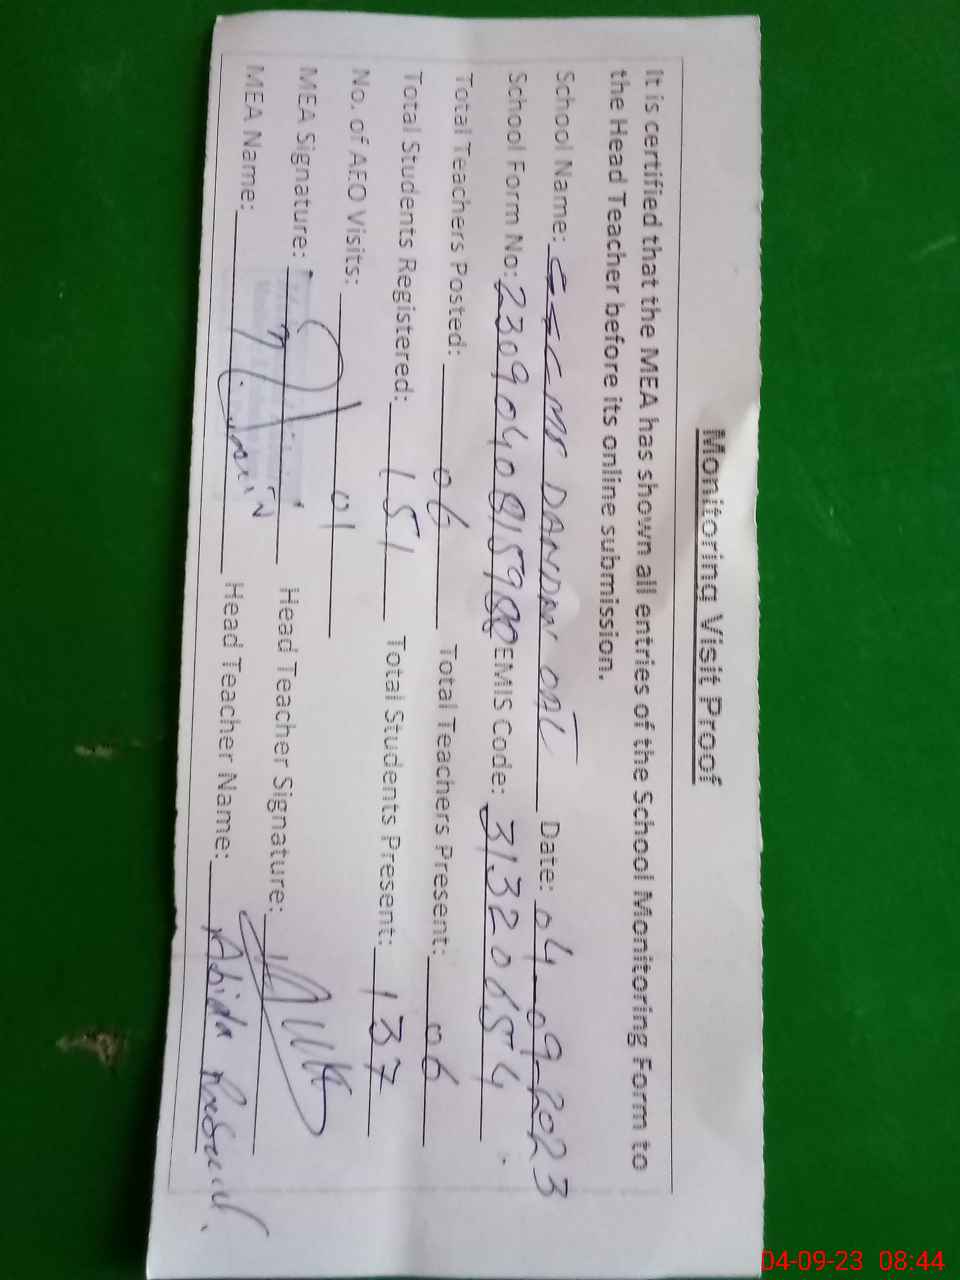 Monitoring Visit Proof
It is certified that the MEA has shown all entries of the School Monitoring Form to
the Head Teacher before its online submission.
School Name: DANDAN Date: 04-09-2023
School Form No: EMIS Code: 31320654
Total Teachers Posted: 06 Total Teachers Present: 06
Total Students Registered: 151 Total Students Present: 137
No. of AEO Visits: 01
MEA Signature: Head Teacher Signature:
MEA Name: Head Teacher Name: Abida
04-09-23 08:44